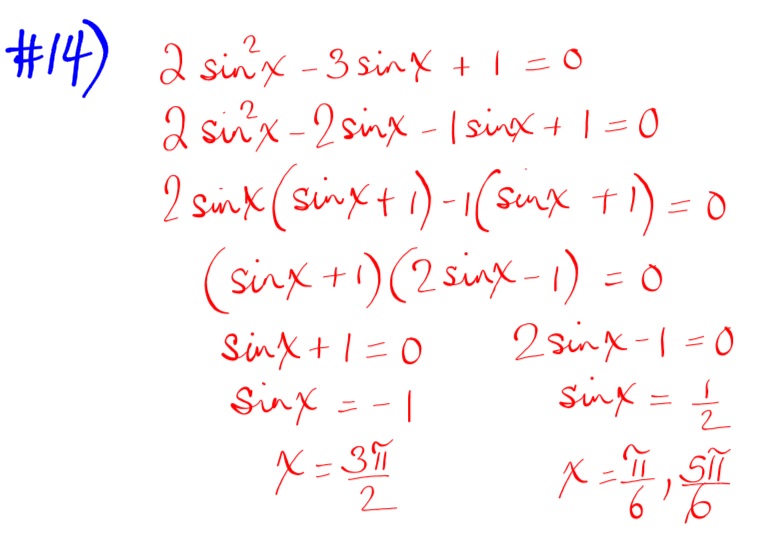 #14) 2 sin²x - 3 sinx + 1 = 0
2 sin²x - 2 sinx - 1 sinx + 1 = 0
2 sinx (sinx + 1) - 1 (sinx + 1) = 0
(sinx + 1)(2 sinx - 1) = 0
sinx + 1 = 0    2 sinx - 1 = 0
sinx = -1    sinx = 1/2
x = 3π/2    x = π/6, 5π/6